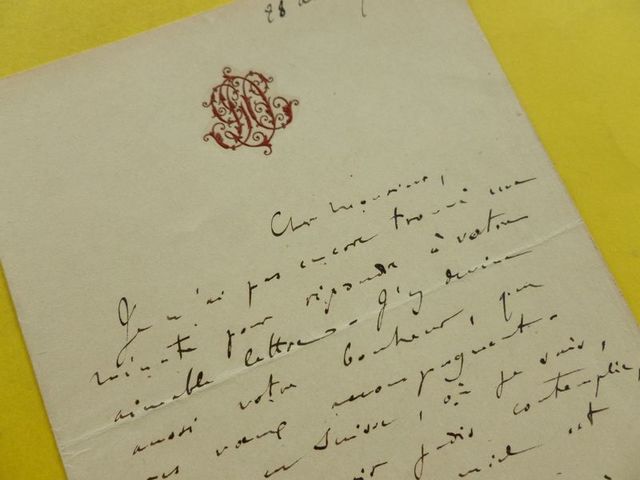 28
Cher Monsieur,
Je n'ai pas encore trouvé une
minute pour répondre à votre
aimable lettre. J'y devine
aussi votre bonheur, que
mes vœux accompagnent.
en Suisse, où je vais,
jadis contemplé,
est